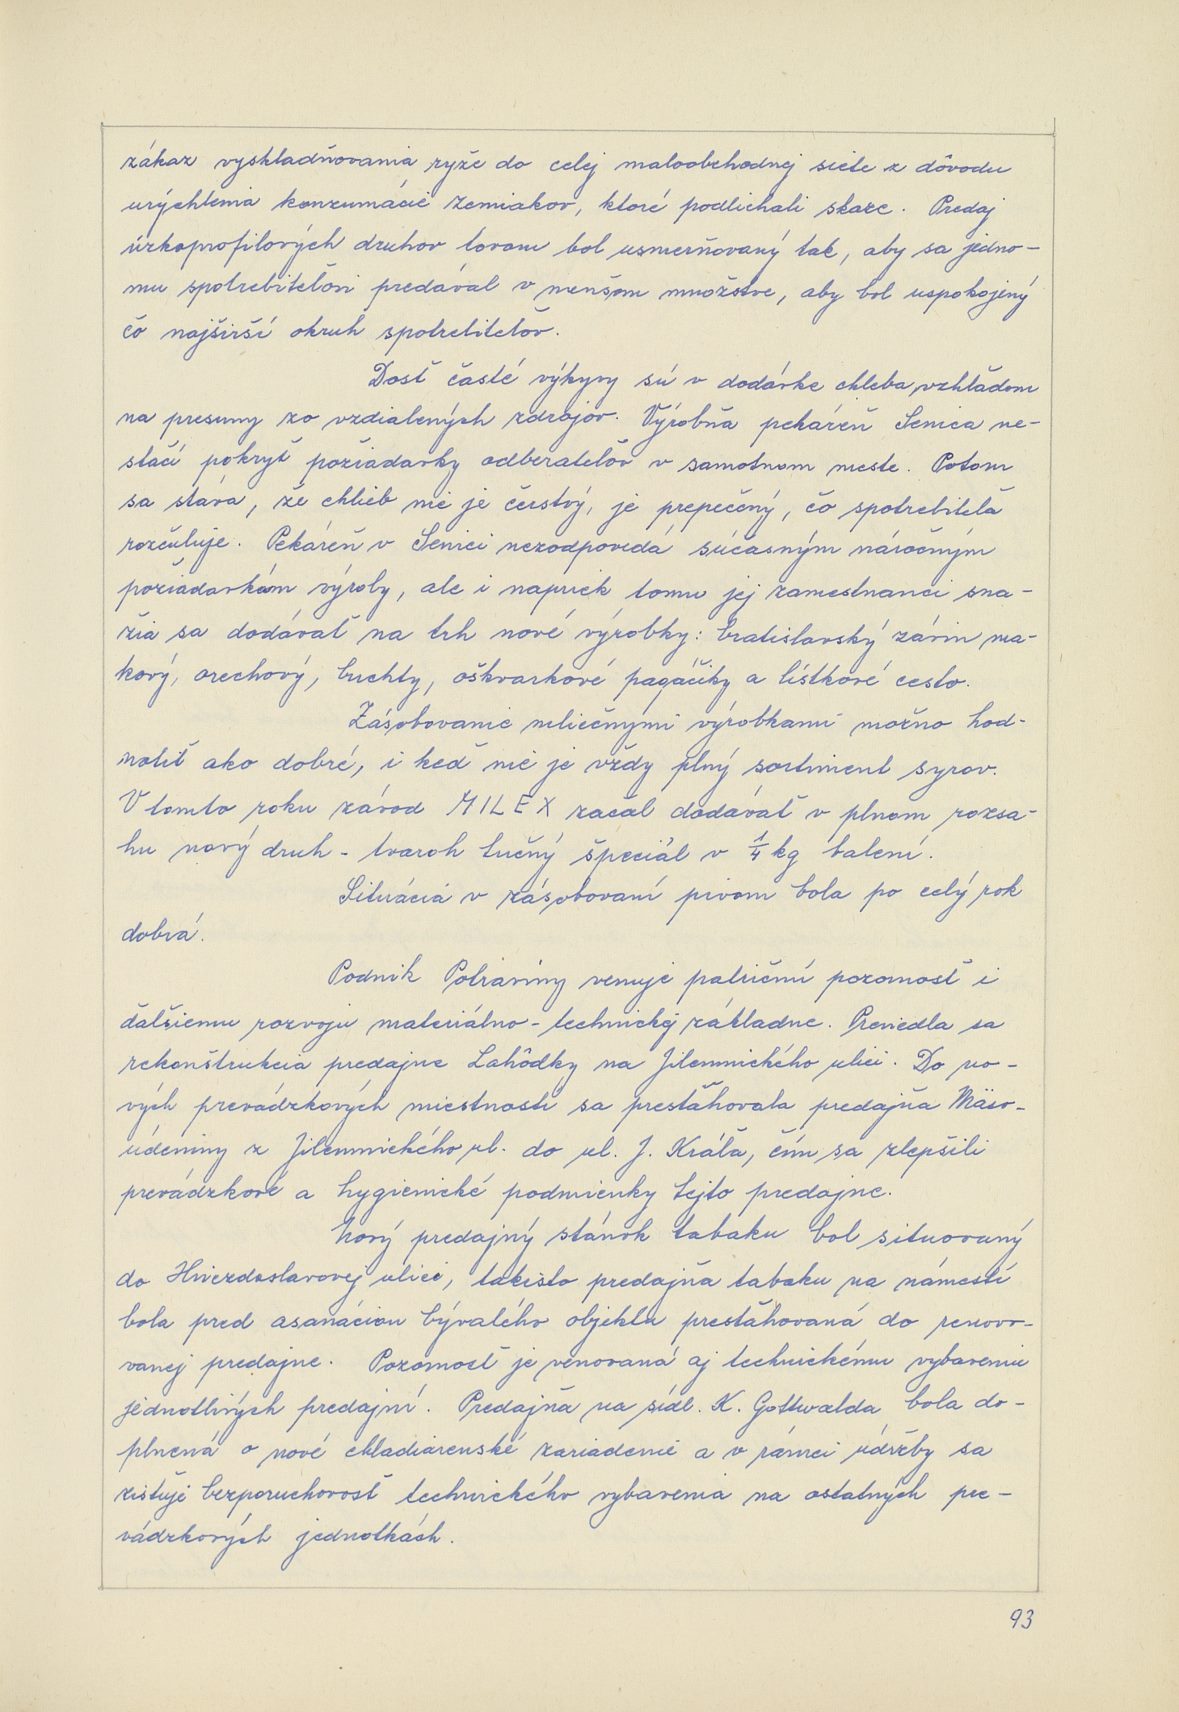 zákaz vyskladňovania ryže do celej maloobchodnej siete z dôvodu
urýchlenia konzumácie zemiakov, ktoré podliehali skaze. Predaj
úzkoprofilových druhov tovaru bol usmerňovaný tak, aby sa jedno-
mu spotrebiteľovi predával v menšom množstve, aby bol uspokojený
čo najširší okruh spotrebiteľov.
Dosť časté výkyvy sú v dodávke chleba, vzhľadom
na presuny zo vzdialených zdrojov. Výrobňa pekáreň Senica ne-
stačí pokryť požiadavky odberateľov v samotnom meste. Potom
sa stáva, že chlieb nie je čerstvý, je prepečený, čo spotrebiteľa
rozčuľuje. Pekáreň v Senici nezodpovedá súčasným náročným
požiadavkám výroby, ale i napriek tomu jej zamestnanci sna-
žia sa dodávať na trh nové výrobky: bratislavský závin ma-
kový, orechový, buchty, oškvarkové pagáčiky a lístkové cesto.
Zásobovanie mliečnými výrobkami možno hod-
notiť ako dobré, i keď nie je vždy plný sortiment syrov.
V tomto roku závod MILEX začal dodávať v plnom rozsa-
hu nový druh - tvaroh tučný špeciál v 1/4 kg balení.
Situácia v zásobovaní pivom bola po celý rok
dobrá.
Podnik Potraviny venuje patričnú pozornosť i
ďalšiemu rozvoju materiálno - technickej základne. Previedla sa
rekonštrukcia predajne Lahôdky na Jilemnického ulici. Do no-
vých prevádzkových miestností sa presťahovala predajňa Mäso-
údeniny z Jilemnického ul. do ul. J. Kráľa, čím sa zlepšili
prevádzkové a hygienické podmienky tejto predajne.
Nový predajný stánok tabaku bol situovaný
do Hviezdoslavovej ulici, takisto predajňa tabaku na námestí
bola pred asanáciou bývalého objektu presťahovaná do renovo-
vanej predajne. Pozornosť je venovaná aj technickému vybaveniu
jednotlivých predajní. Predajňa na sídl. K. Gottwalda bola do-
plnená o nové chladiarenské zariadenie a v rámci údržby sa
zisťuje bezporuchovosť technického vybavenia na ostatných pre-
vádzkových jednotkách.
93